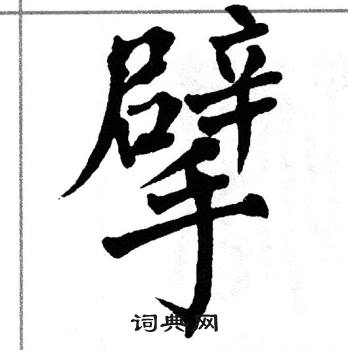 擘
词典网